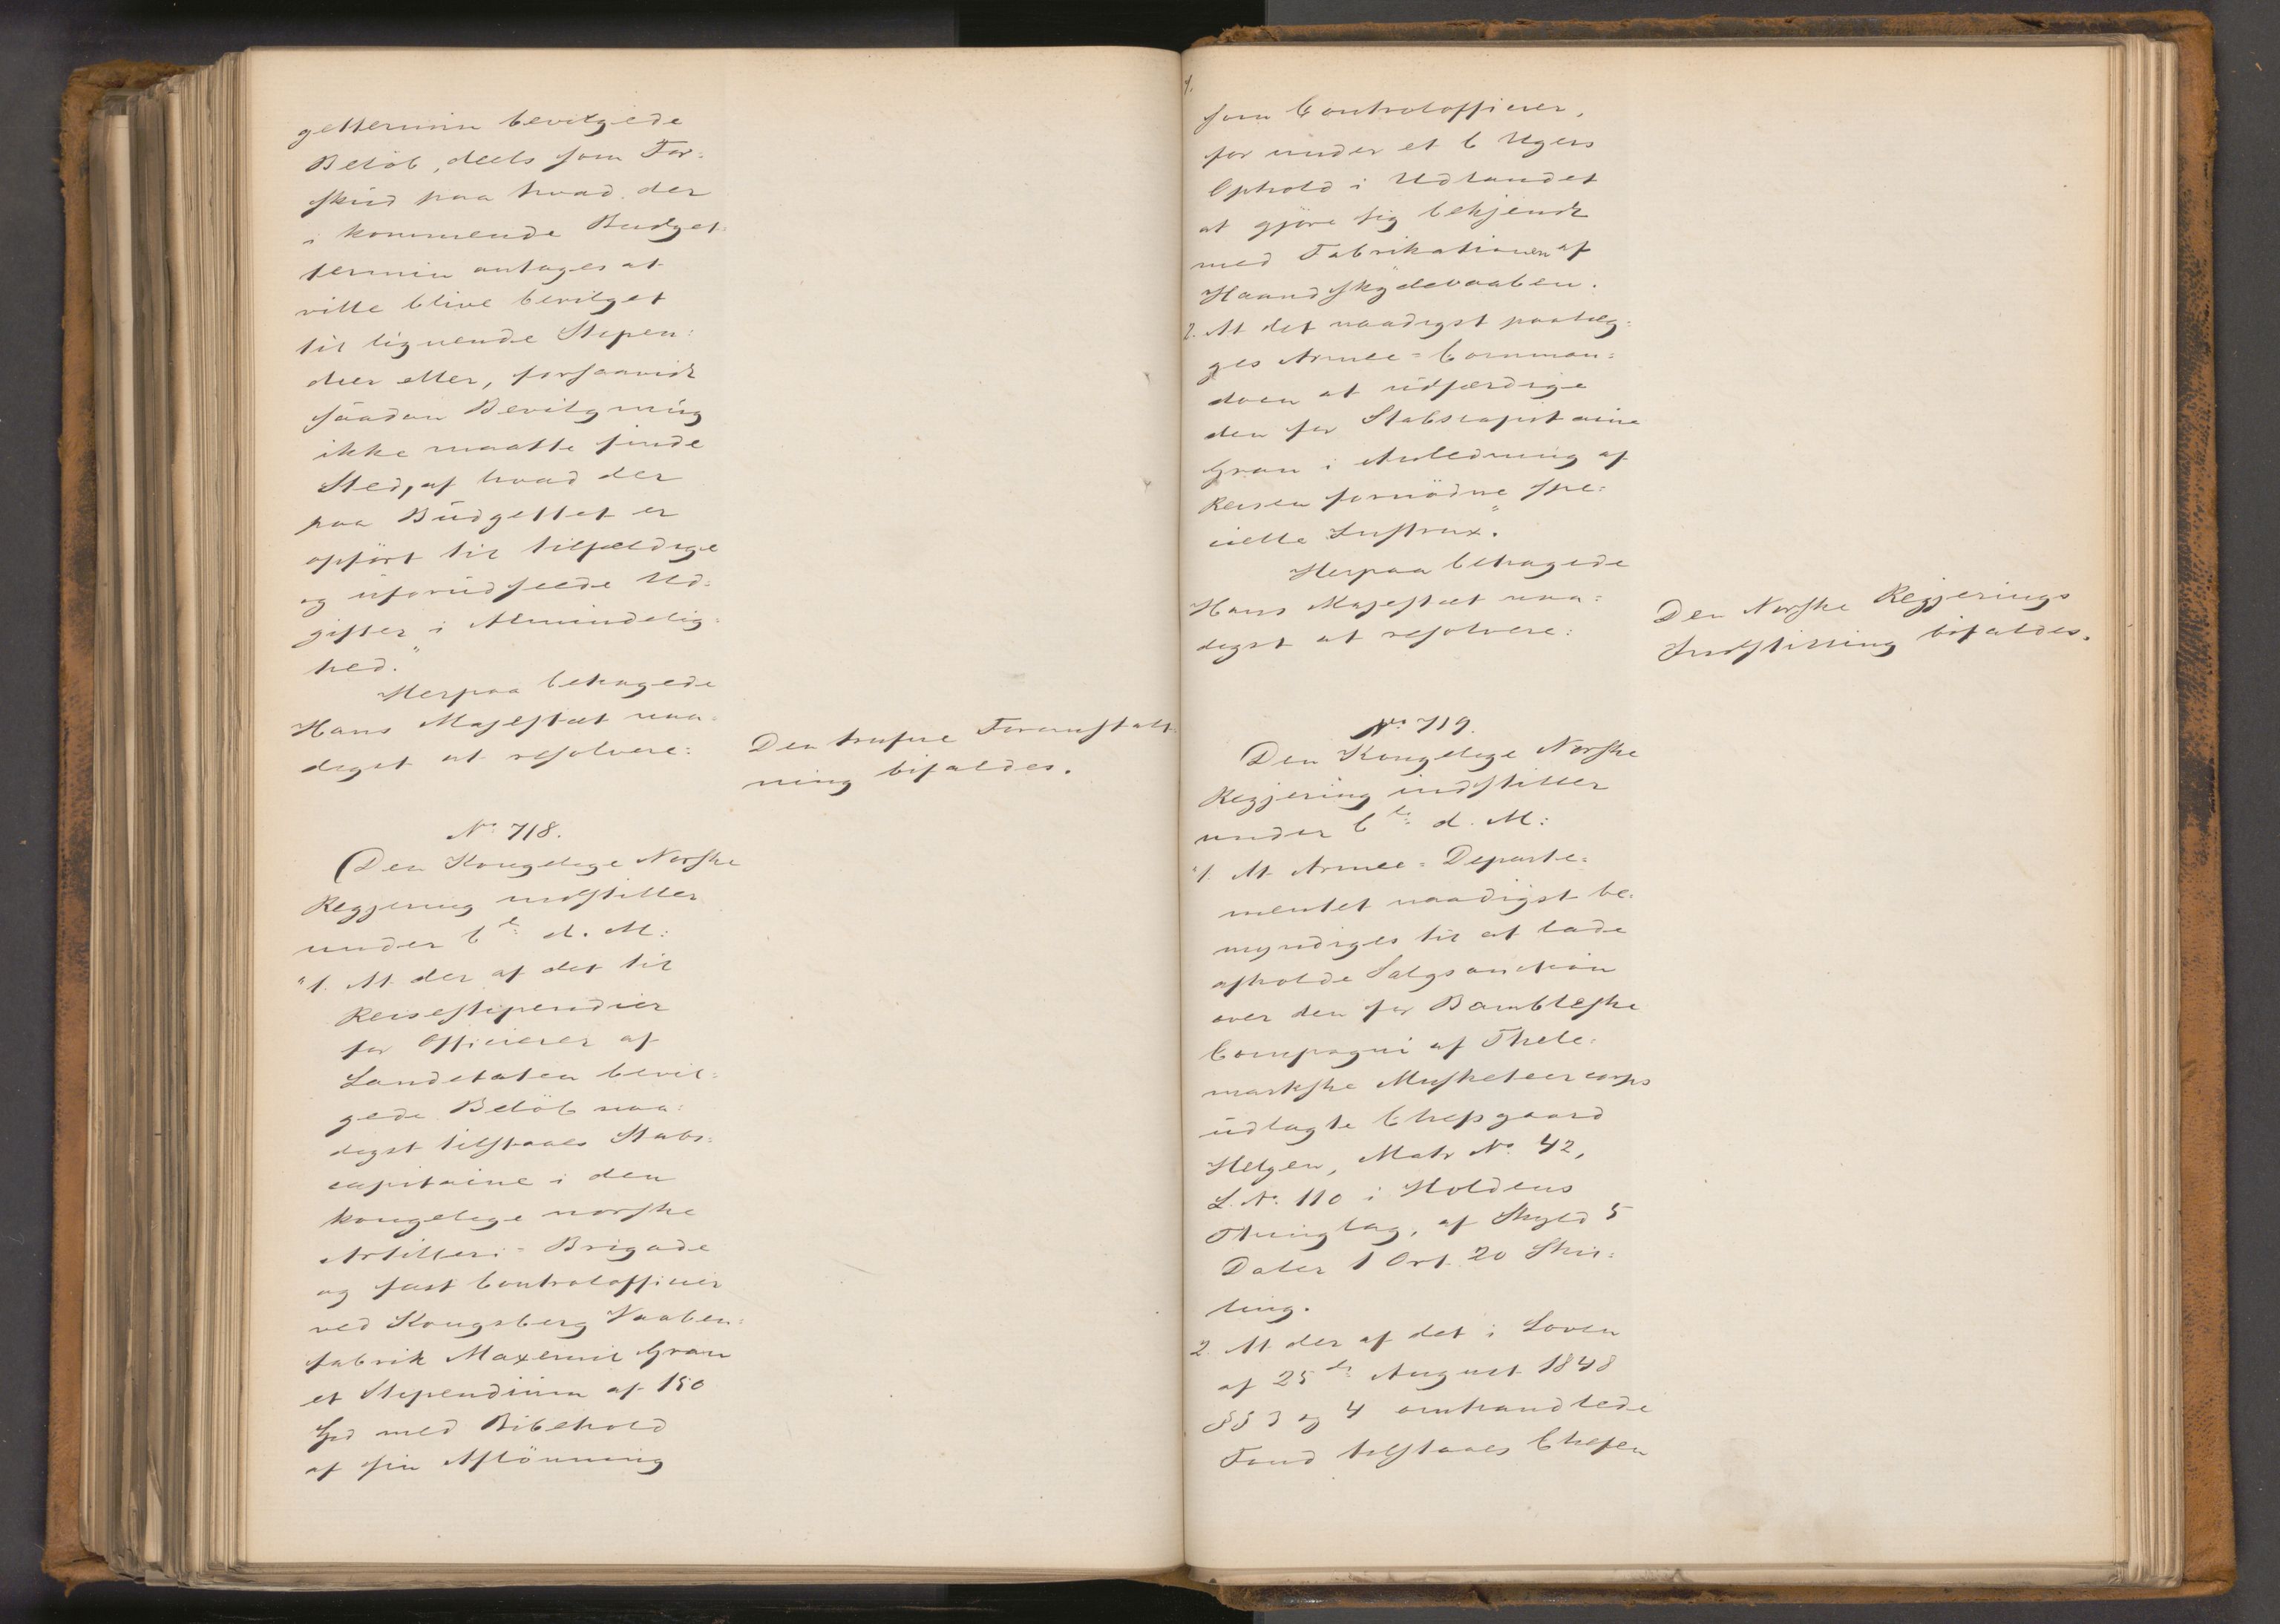 getterminn bevilgede
Beløb, deels som For=
skud paa hvad der
i kommende Budget=
termin antages at
ville blive bevilget
til lignende Stipen=
dier eller, forsaavidt
saadan Bevilgning
ikke maatte finde
Sted, af hvad der
paa Budgettet er
opført til tilfældige
og uforudseede Ud=
gifter i Almindelig=
hed."
Herpaa behagede
Hans Majestæt naa=
digst at resolvere:
Den trufne Foranstalt=
ning bifaldes.
No 718.
Den Kongelige Norske
Regjering indstiller
under 6te d. M:
"1. At der af det til
Reisestipendier
for Officierer af
Landetaten bevil=
gede Beløb naa=
digst tilstaaes Stabs=
capitaine i den
kongelige norske
Artilleri=Brigade
og fast Controlofficier
ved Kongsberg Vaaben=
fabrik Maxemil Gran
et Stipendium af 150
Spd med Bibehold
af sin Aflønning
som Controlofficier,
for under et 6 Ugers
Ophold i Udlandet
at gjøre sig bekjendt
med Fabrikationen af
Haandskydevaaben.
2. At det naadigst paalæg=
ges Armee=Comman=
doen at udfærdige
den for Stabscapitaine
Gran i Anledning af
Reisen fornødne spe=
cielle Instrux."
Herpaa behagede
Hans Majestæt naa=
digst at resolvere:
Den Norske Regjerings
Indstilling bifaldes.
No 719.
Den Kongelige Norske
Regjering indstiller
under 6te d. M:
"1. At Armee=Departe=
mentet naadigst be=
myndiges til at lade
afholde Salgsauction
over den for Bambleske
Compagni af Thele=
markske Musketeercorps
udlagte Chefsgaard
Helgen, Matr No 42,
L. No 110 i Holdens
Thinglag, af Skyld 5
Daler 1 Ort 20 Skil=
ling.
2. At der af det i Loven
af 25de August 1848
§§ 3 og 4 omhandlede
Fond tilstaaes Chefen